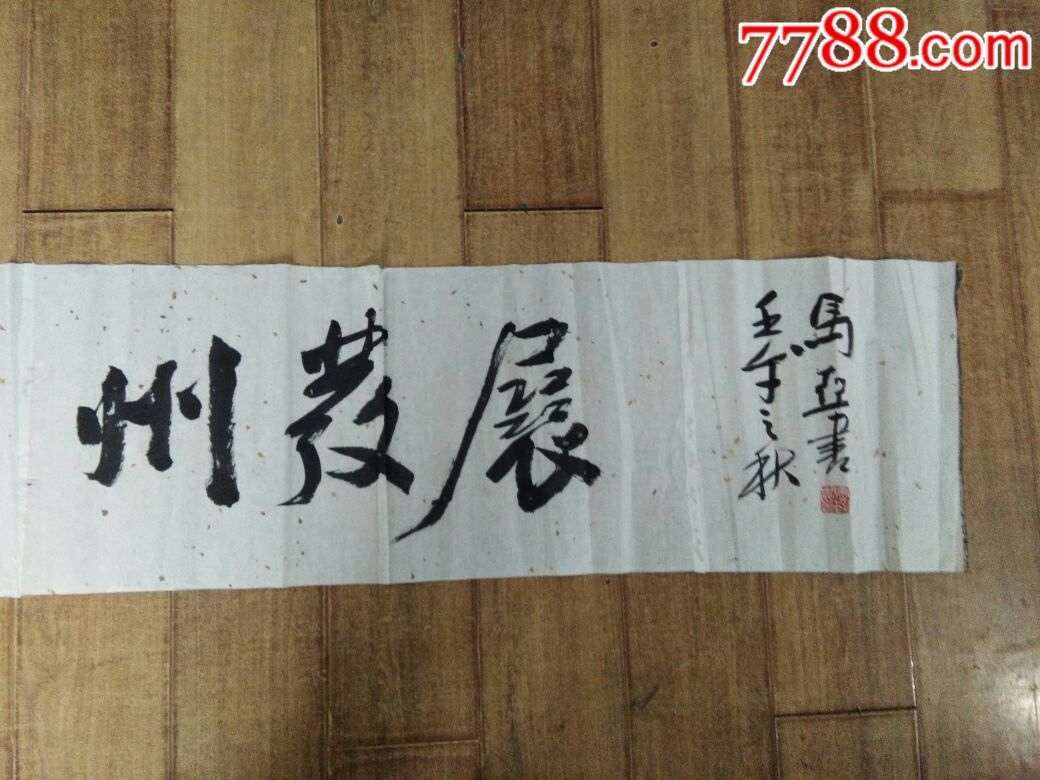 7788.com
州發展
壬午之秋
馬書